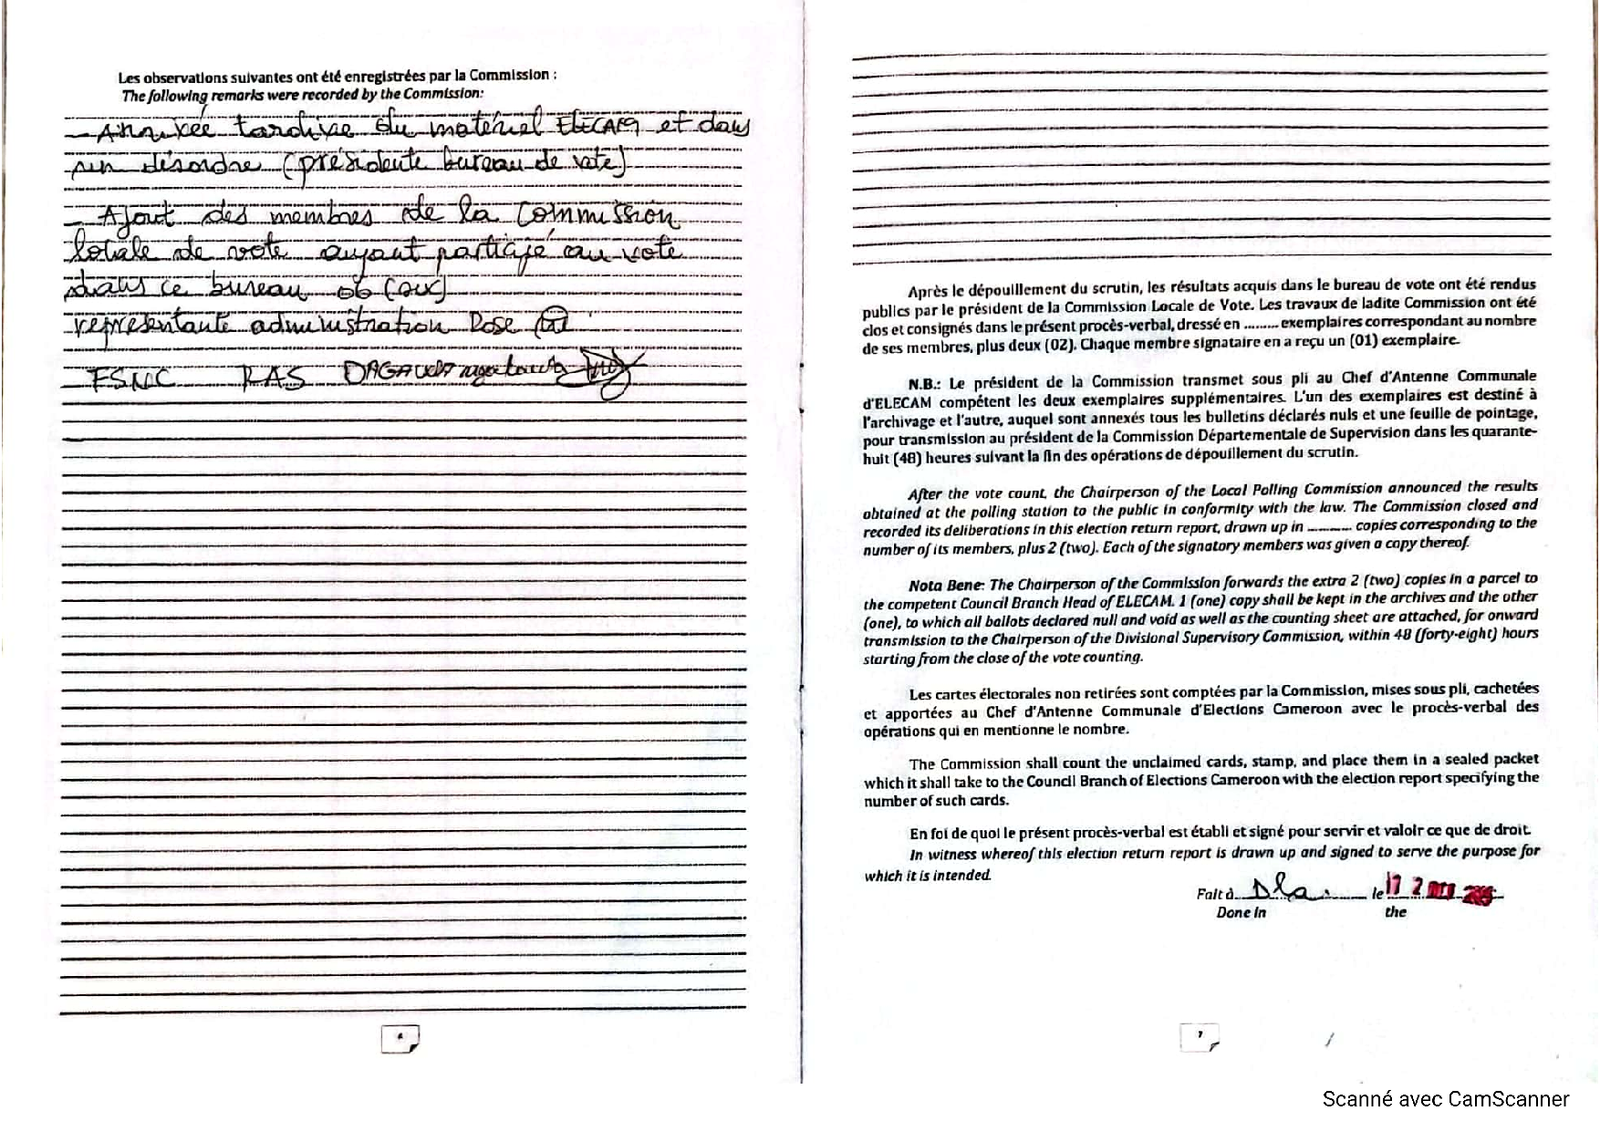 Les observations suivantes ont été enregistrées par la Commission :
The following remarks were recorded by the Commission:
- Arrivée tardive du matériel ELECAM et dans
un désordre (présidente bureau de vote)
- Ajout des membres de la Commission
locale de vote ayant participé au vote
dans ce bureau 06 (six)
représentante administration Rose
FSNC RAS
6
Après le dépouillement du scrutin, les résultats acquis dans le bureau de vote ont été rendus
publics par le président de la Commission Locale de Vote. Les travaux de ladite Commission ont été
clos et consignés dans le présent procès-verbal, dressé en ......... exemplaires correspondant au nombre
de ses membres, plus deux (02). Chaque membre signataire en a reçu un (01) exemplaire.
N.B.: Le président de la Commission transmet sous pli au Chef d'Antenne Communale
d'ELECAM compétent les deux exemplaires supplémentaires. L'un des exemplaires est destiné à
l'archivage et l'autre, auquel sont annexés tous les bulletins déclarés nuls et une feuille de pointage,
pour transmission au président de la Commission Départementale de Supervision dans les quarante-
huit (48) heures suivant la fin des opérations de dépouillement du scrutin.
After the vote count, the Chairperson of the Local Polling Commission announced the results
obtained at the polling station to the public in conformity with the law. The Commission closed and
recorded its deliberations in this election return report, drawn up in .......... copies corresponding to the
number of its members, plus 2 (two). Each of the signatory members was given a copy thereof.
Nota Bene: The Chairperson of the Commission forwards the extra 2 (two) copies in a parcel to
the competent Council Branch Head of ELECAM. 1 (one) copy shall be kept in the archives and the other
(one), to which all ballots declared null and void as well as the counting sheet are attached, for onward
transmission to the Chairperson of the Divisional Supervisory Commission, within 48 (forty-eight) hours
starting from the close of the vote counting.
Les cartes électorales non retirées sont comptées par la Commission, mises sous pli, cachetées
et apportées au Chef d'Antenne Communale d'Elections Cameroon avec le procès-verbal des
opérations qui en mentionne le nombre.
The Commission shall count the unclaimed cards, stamp, and place them in a sealed packet
which it shall take to the Council Branch of Elections Cameroon with the election report specifying the
number of such cards.
En foi de quoi le présent procès-verbal est établi et signé pour servir et valoir ce que de droit.
In witness whereof this election return report is drawn up and signed to serve the purpose for
which it is intended.
Fait à Dla. le
Done in the
7
Scanné avec CamScanner